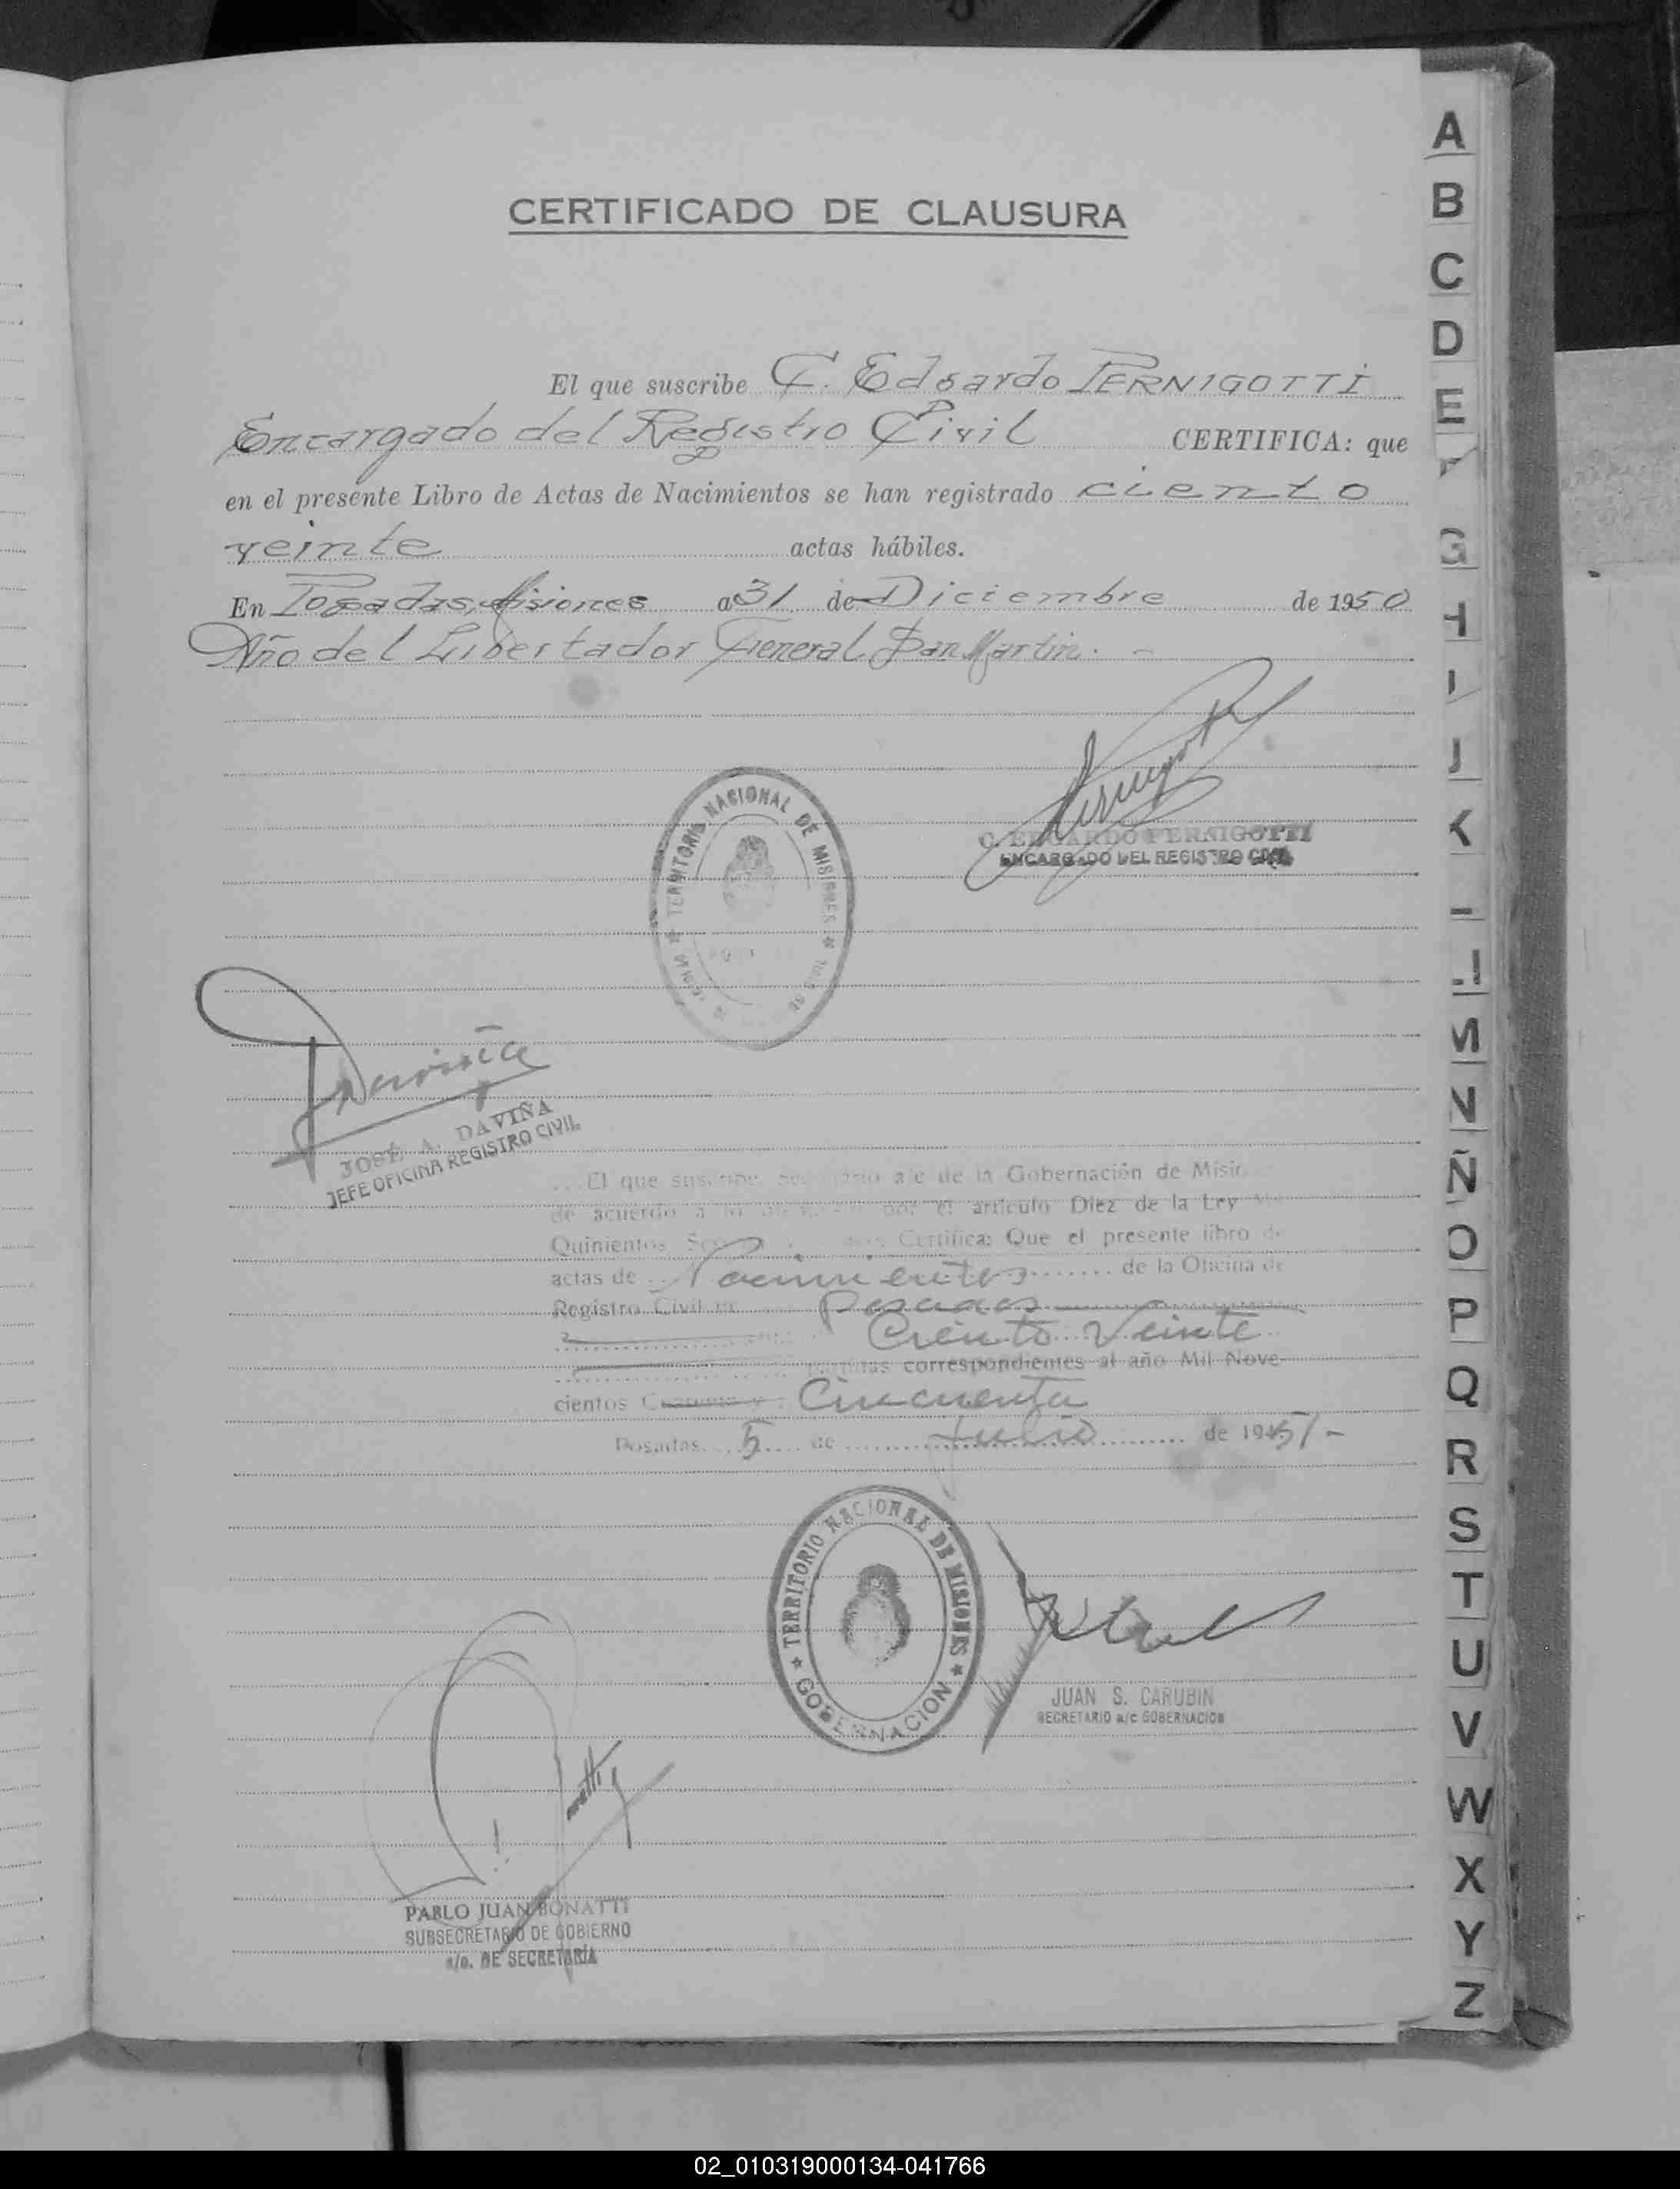 CERTIFICADO DE CLAUSURA
El que suscribe C. Edgardo PERNIGOTTI
Encargado del Registro Civil CERTIFICA: que
en el presente Libro de Actas de Nacimientos se han registrado ciento
veinte actas hábiles.
En Posadas, Misiones a 31 de Diciembre de 1950
Año del Libertador General San Martin. -
TERRITORIO NACIONAL DE MISIONES
C. EDGARDO PERNIGOTTI
ENCARGADO DEL REGISTRO CIVIL
JOSÉ A. DAVIÑA
JEFE OFICINA REGISTRO CIVIL
El que suscribe Secretario a/c de la Gobernación de
de acuerdo a lo por el artículo Diez de la Ley
Quinientos Certifica: Que el presente libro de
actas de Nacimientos de la Oficina de
Registro Civil de Posadas
Ciento Veinte
correspondientes al año Mil Nove-
cientos Cuarenta y Cincuenta
Posadas 5 de Julio de 1951 -
TERRITORIO NACIONAL DE MISIONES
GOBERNACION
JUAN S. CARUBIN
SECRETARIO a/c GOBERNACION
PABLO JUAN BONATTI
SUBSECRETARIO DE GOBIERNO
a/c. DE SECRETARÍA
A
B
C
D
E
F
G
H
I
J
K
L
LL
M
N
Ñ
O
P
Q
R
S
T
U
V
W
X
Y
Z
02_010319000134-041766